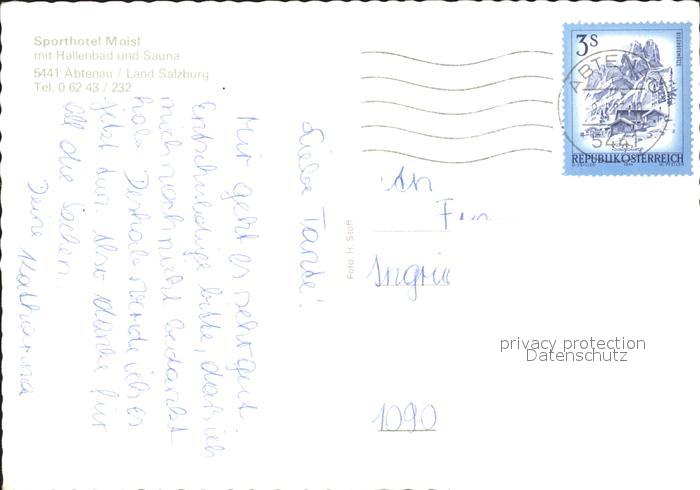 Sporthotel Moisl
mit Hallenbad und Sauna
5441 Abtenau / Land Salzburg
Tel. 0 62 43 / 232
Liebe Tante!
Mir geht es sehr gut.
Entschuldige bitte, daß ich
mich noch nicht bedankt
habe. Deshalb werde ich es
jetzt tun. Also danke für
all die Sachen.
Deine Katharina
Foto: H. Stoff
3S
BISCHOFSMÜTZE
REPUBLIK ÖSTERREICH
ABTENAU
5441
An
Frau
Ingrid
1090
privacy protection
Datenschutz